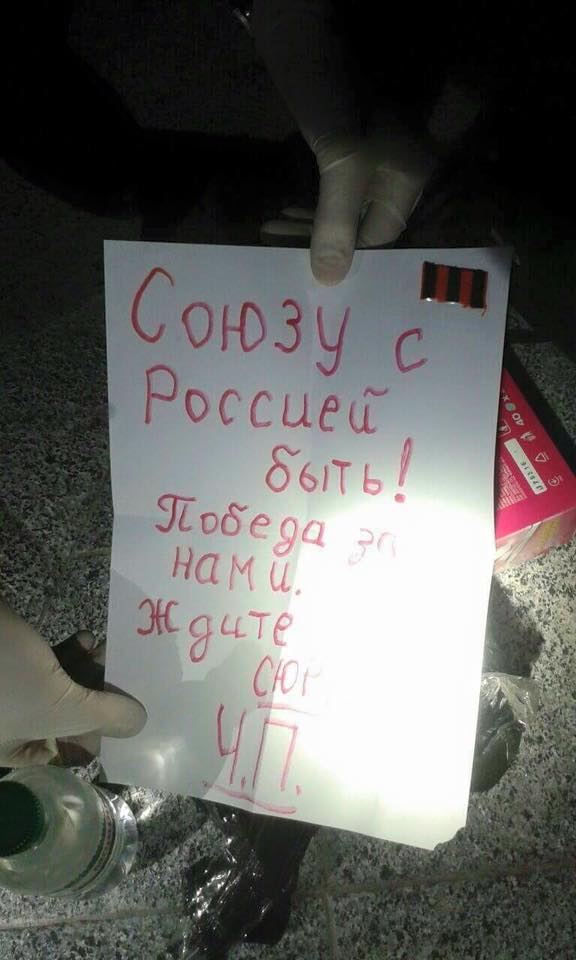 Союзу с
Россией
быть!
Победа за
нами.
Ждите
Ч.П.
40